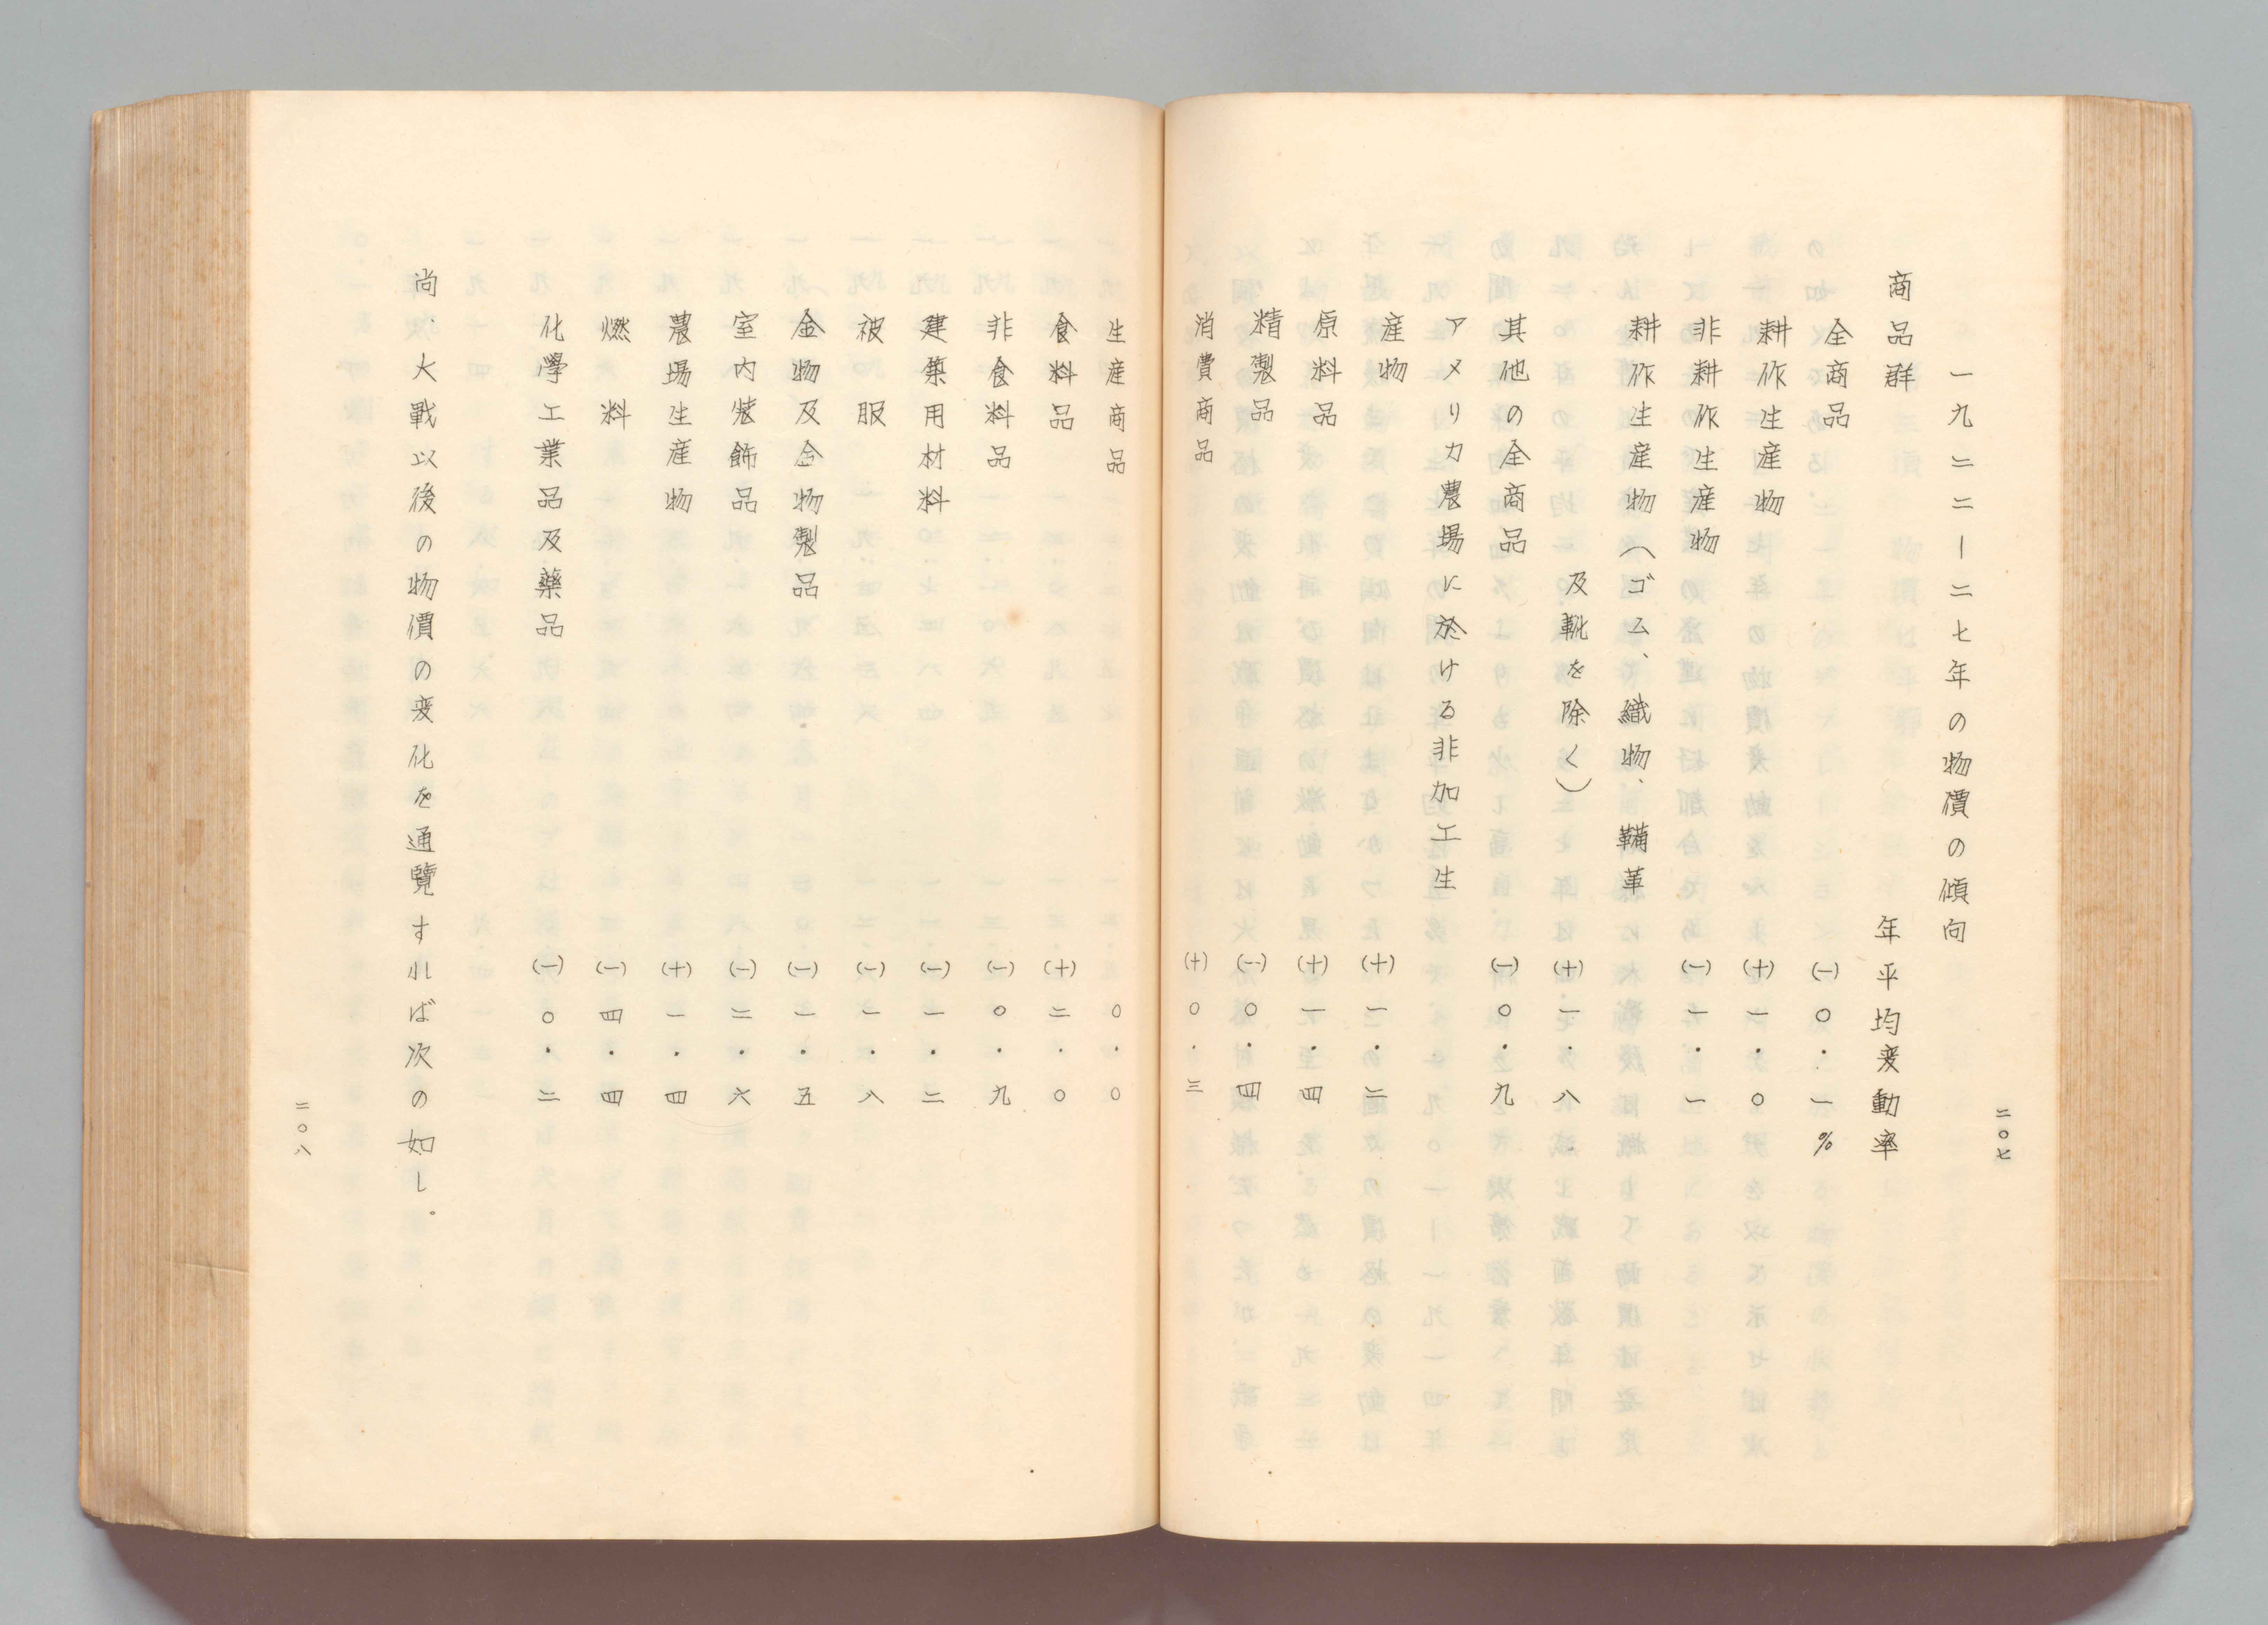 二〇七
一九二二―二七年の物價の傾向
商品群 年平均変動率
全商品 (一)〇・一%
耕作生産物 (十)一・〇
非耕作生産物 (一)一・一
耕作生産物(ゴム、織物、鞴革
及靴を除く) (十)一・八
其他の全商品 (一)〇・九
アメリカ農場に於ける非加工生
産物 (十)一・二
原料品 (十)一・四
精製品 (一)〇・四
消費商品 (十)〇・三
生産商品 〇・〇
食料品 (十)二・〇
非食料品 (一)〇・九
建築用材料 (一)一・二
被服 (一)一・八
金物及金物製品 (一)一・五
室内裝飾品 (一)二・六
農場生産物 (十)一・四
燃料 (一)四・四
化學工業品及藥品 (一)〇・二
尚、大戰以後の物價の変化を通覽すれば次の如し。
二〇八